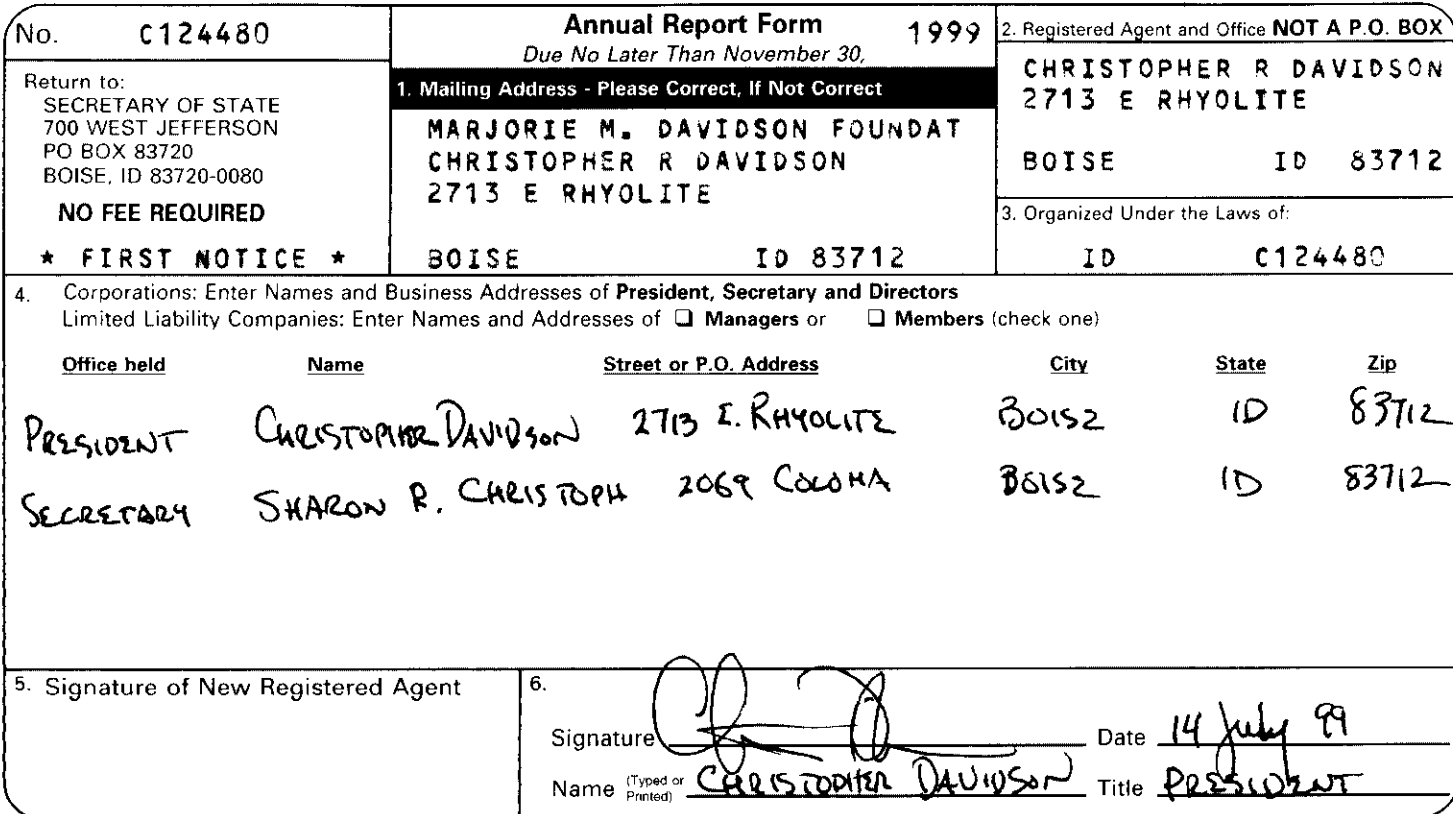 No. C124480
Return to:
SECRETARY OF STATE
700 WEST JEFFERSON
PO BOX 83720
BOISE, ID 83720-0080
NO FEE REQUIRED
* FIRST NOTICE *
Annual Report Form 1999
Due No Later Than November 30,
1. Mailing Address - Please Correct, If Not Correct
MARJORIE M. DAVIDSON FOUNDAT
CHRISTOPHER R DAVIDSON
2713 E RHYOLITE
BOISE ID 83712
2. Registered Agent and Office NOT A P.O. BOX
CHRISTOPHER R DAVIDSON
2713 E RHYOLITE
BOISE ID 83712
3. Organized Under the Laws of:
ID C124480
4. Corporations: Enter Names and Business Addresses of President, Secretary and Directors
Limited Liability Companies: Enter Names and Addresses of ❑ Managers or ❑ Members (check one)
Office held Name Street or P.O. Address City State Zip
PRESIDENT CHRISTOPHER DAVIDSON 2713 E. RHYOLITE BOISE ID 83712
SECRETARY SHARON R. CHRISTOPH 2069 COLOMA BOISE ID 83712
5. Signature of New Registered Agent
6.
Signature Date 14 July 99
Name (Typed or Printed) CHRISTOPHER DAVIDSON Title PRESIDENT